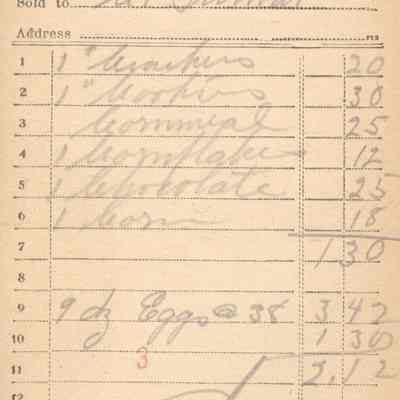 Sold to
Address
1 1 " Crackers 20
2 1 " Cookies 30
3 Cornmeal 25
4 1 Cornflakes 12
5 1 Chocolate 25
6 1 Corn 18
7 1 30
8
9 9 dz Eggs @ 38 3 42
10 1 30
3
11 2,12
12